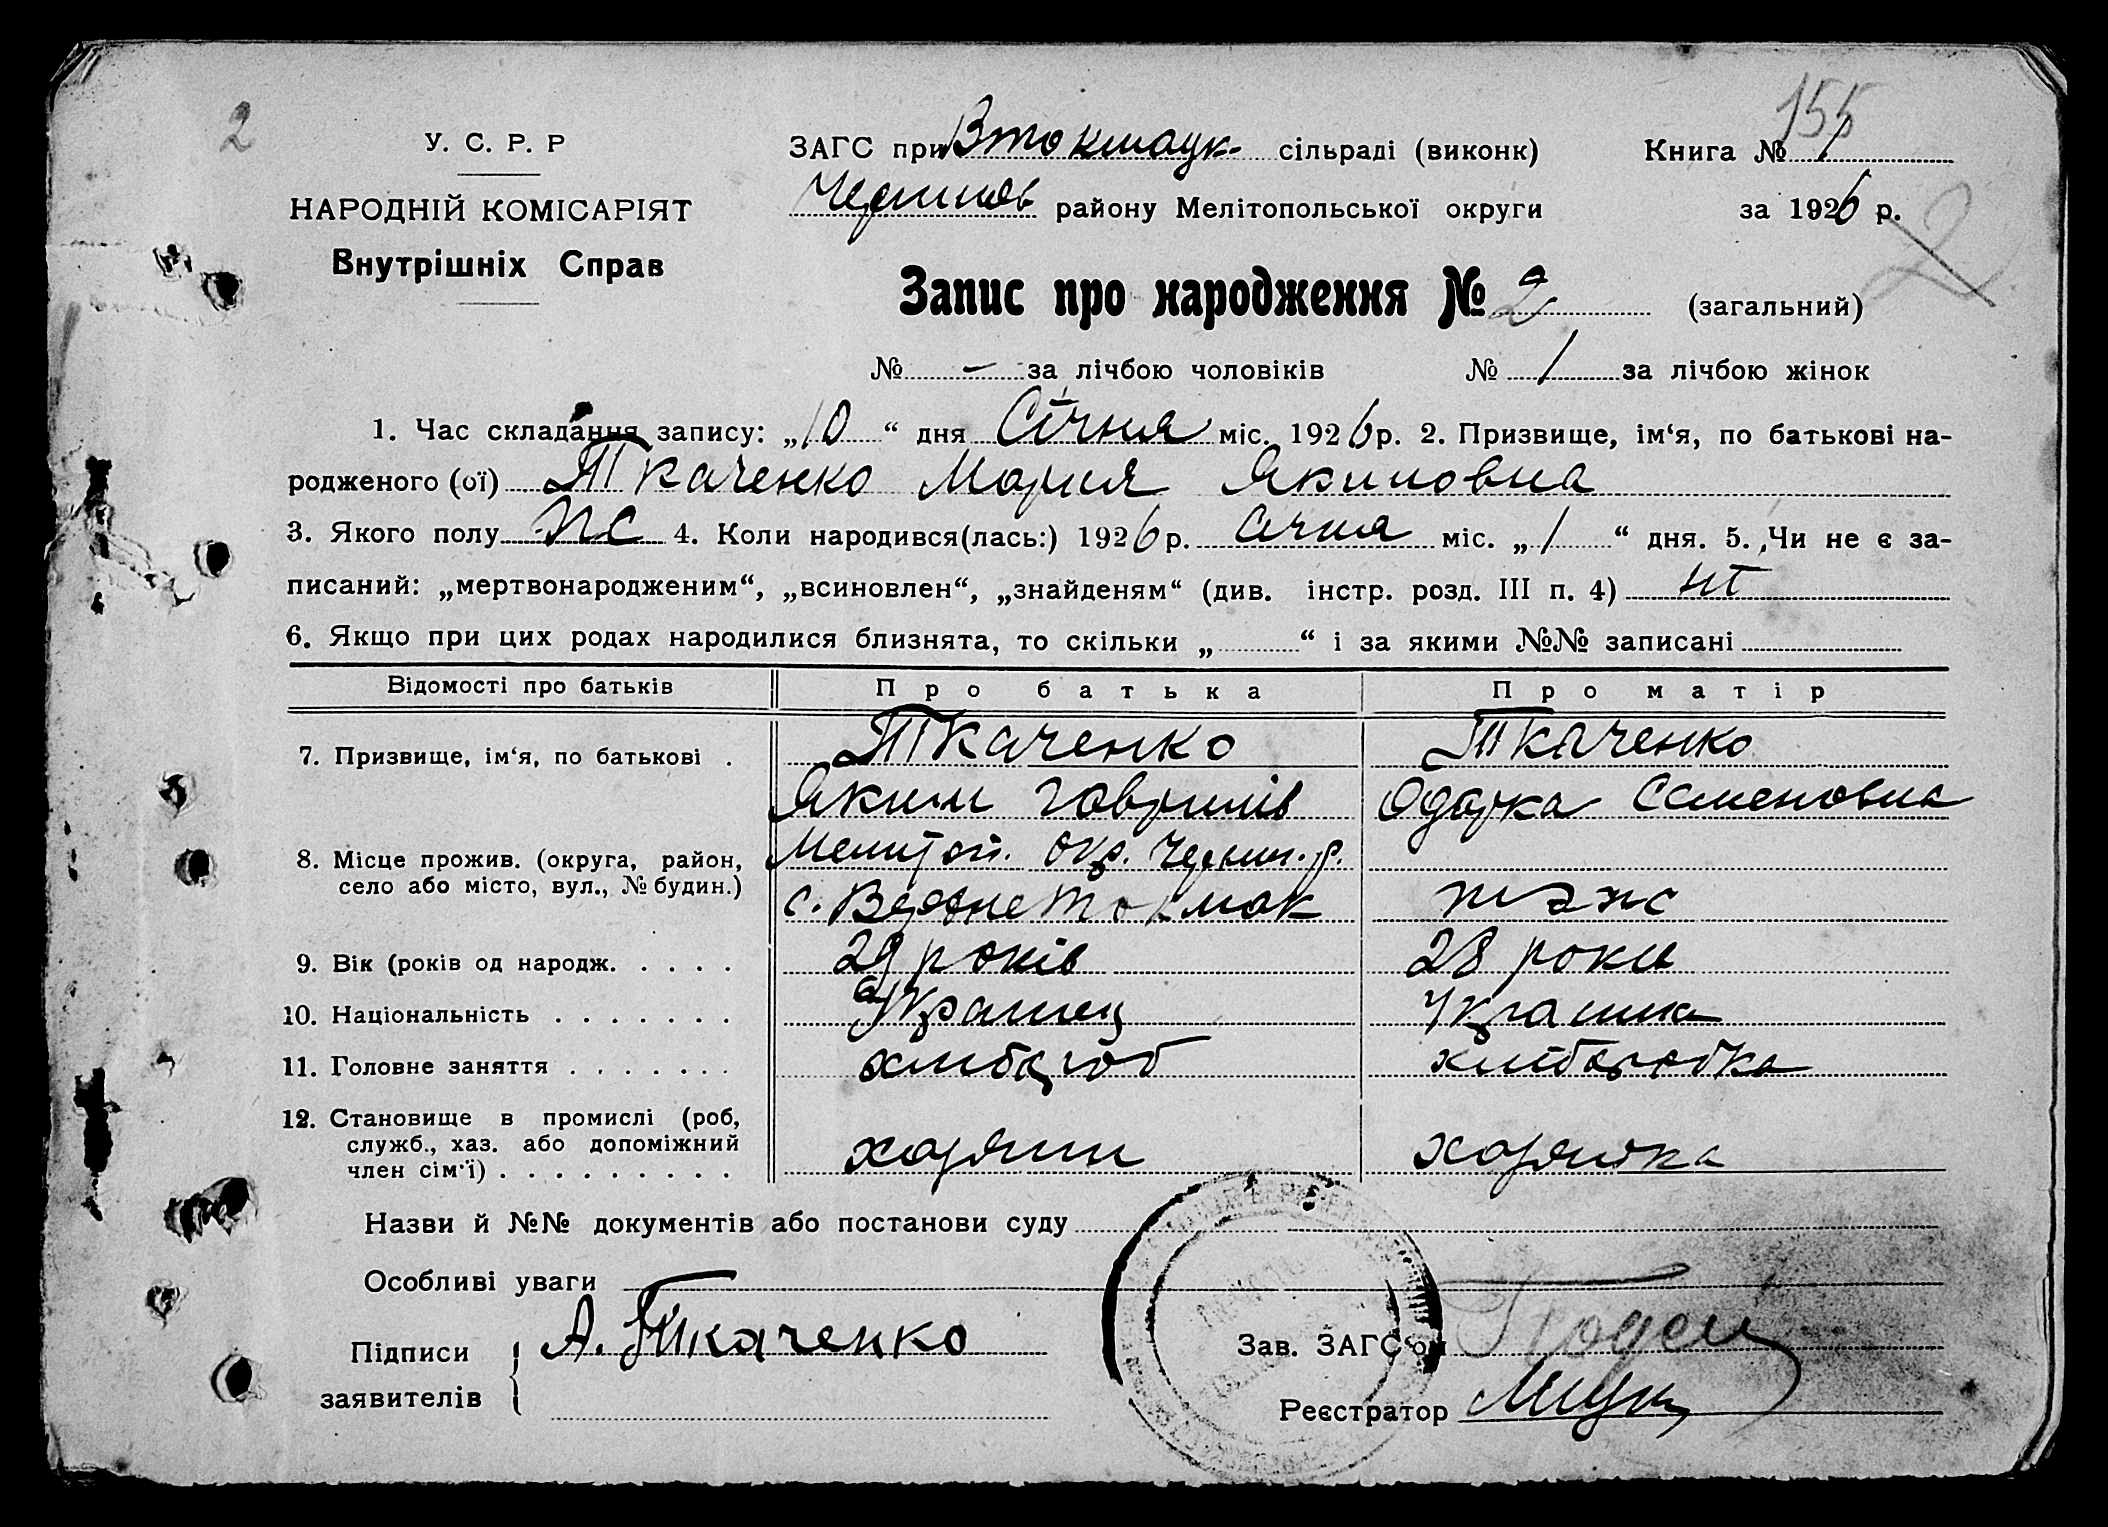 2
155
У. С. Р. Р
ЗАГС при Втокмацк. сільраді (виконк)
Книга № 1
НАРОДНІЙ КОМІСАРІЯТ
району Мелітопольської округи
за 1926 р.
2
Внутрішніх Справ
Запис про народження № 2 (загальний)
№ - за лічбою чоловіків № 1 за лічбою жінок
1. Час складання запису: „10“ дня Січня міс. 1926 р. 2. Призвище, ім‘я, по батькові на-
родженого (ої) Ткаченко Мария Якимовна
3. Якого полу жс 4. Коли народився(лась:) 1926 р. січня міс. „1“ дня. 5. Чи не є за-
писаний: „мертвонародженим“, „всиновлен“, „знайденям“ (див. інстр. розд. III п. 4) ні
6. Якщо при цих родах народилися близнята, то скільки „ “ і за якими №№ записані
Відомості про батьків Про батька Про матір
7. Призвище, ім‘я, по батькові . Ткаченко Ткаченко
Яким Гаврилів Одарка Семеновна
8. Місце прожив. (округа, район, Мелитоп. окр. Черниг. р.
село або місто, вул., № будин.) с. Верхнетокмак тэжс
9. Вік (років од народж. . . . . 29 років 28 роки
10. Національність . . . . . . . Украинец Украинка
11. Головне заняття . . . . . . . хлибороб хлиборобка
12. Становище в промислі (роб,
служб., хаз. або допоміжний
член сім‘ї) . . . . . . . . . хозяин хозяйка
Назви й №№ документів або постанови суду
Особливі уваги
Підписи
заявителів
А. Ткаченко
Зав. ЗАГС‘ом
Реєстратор